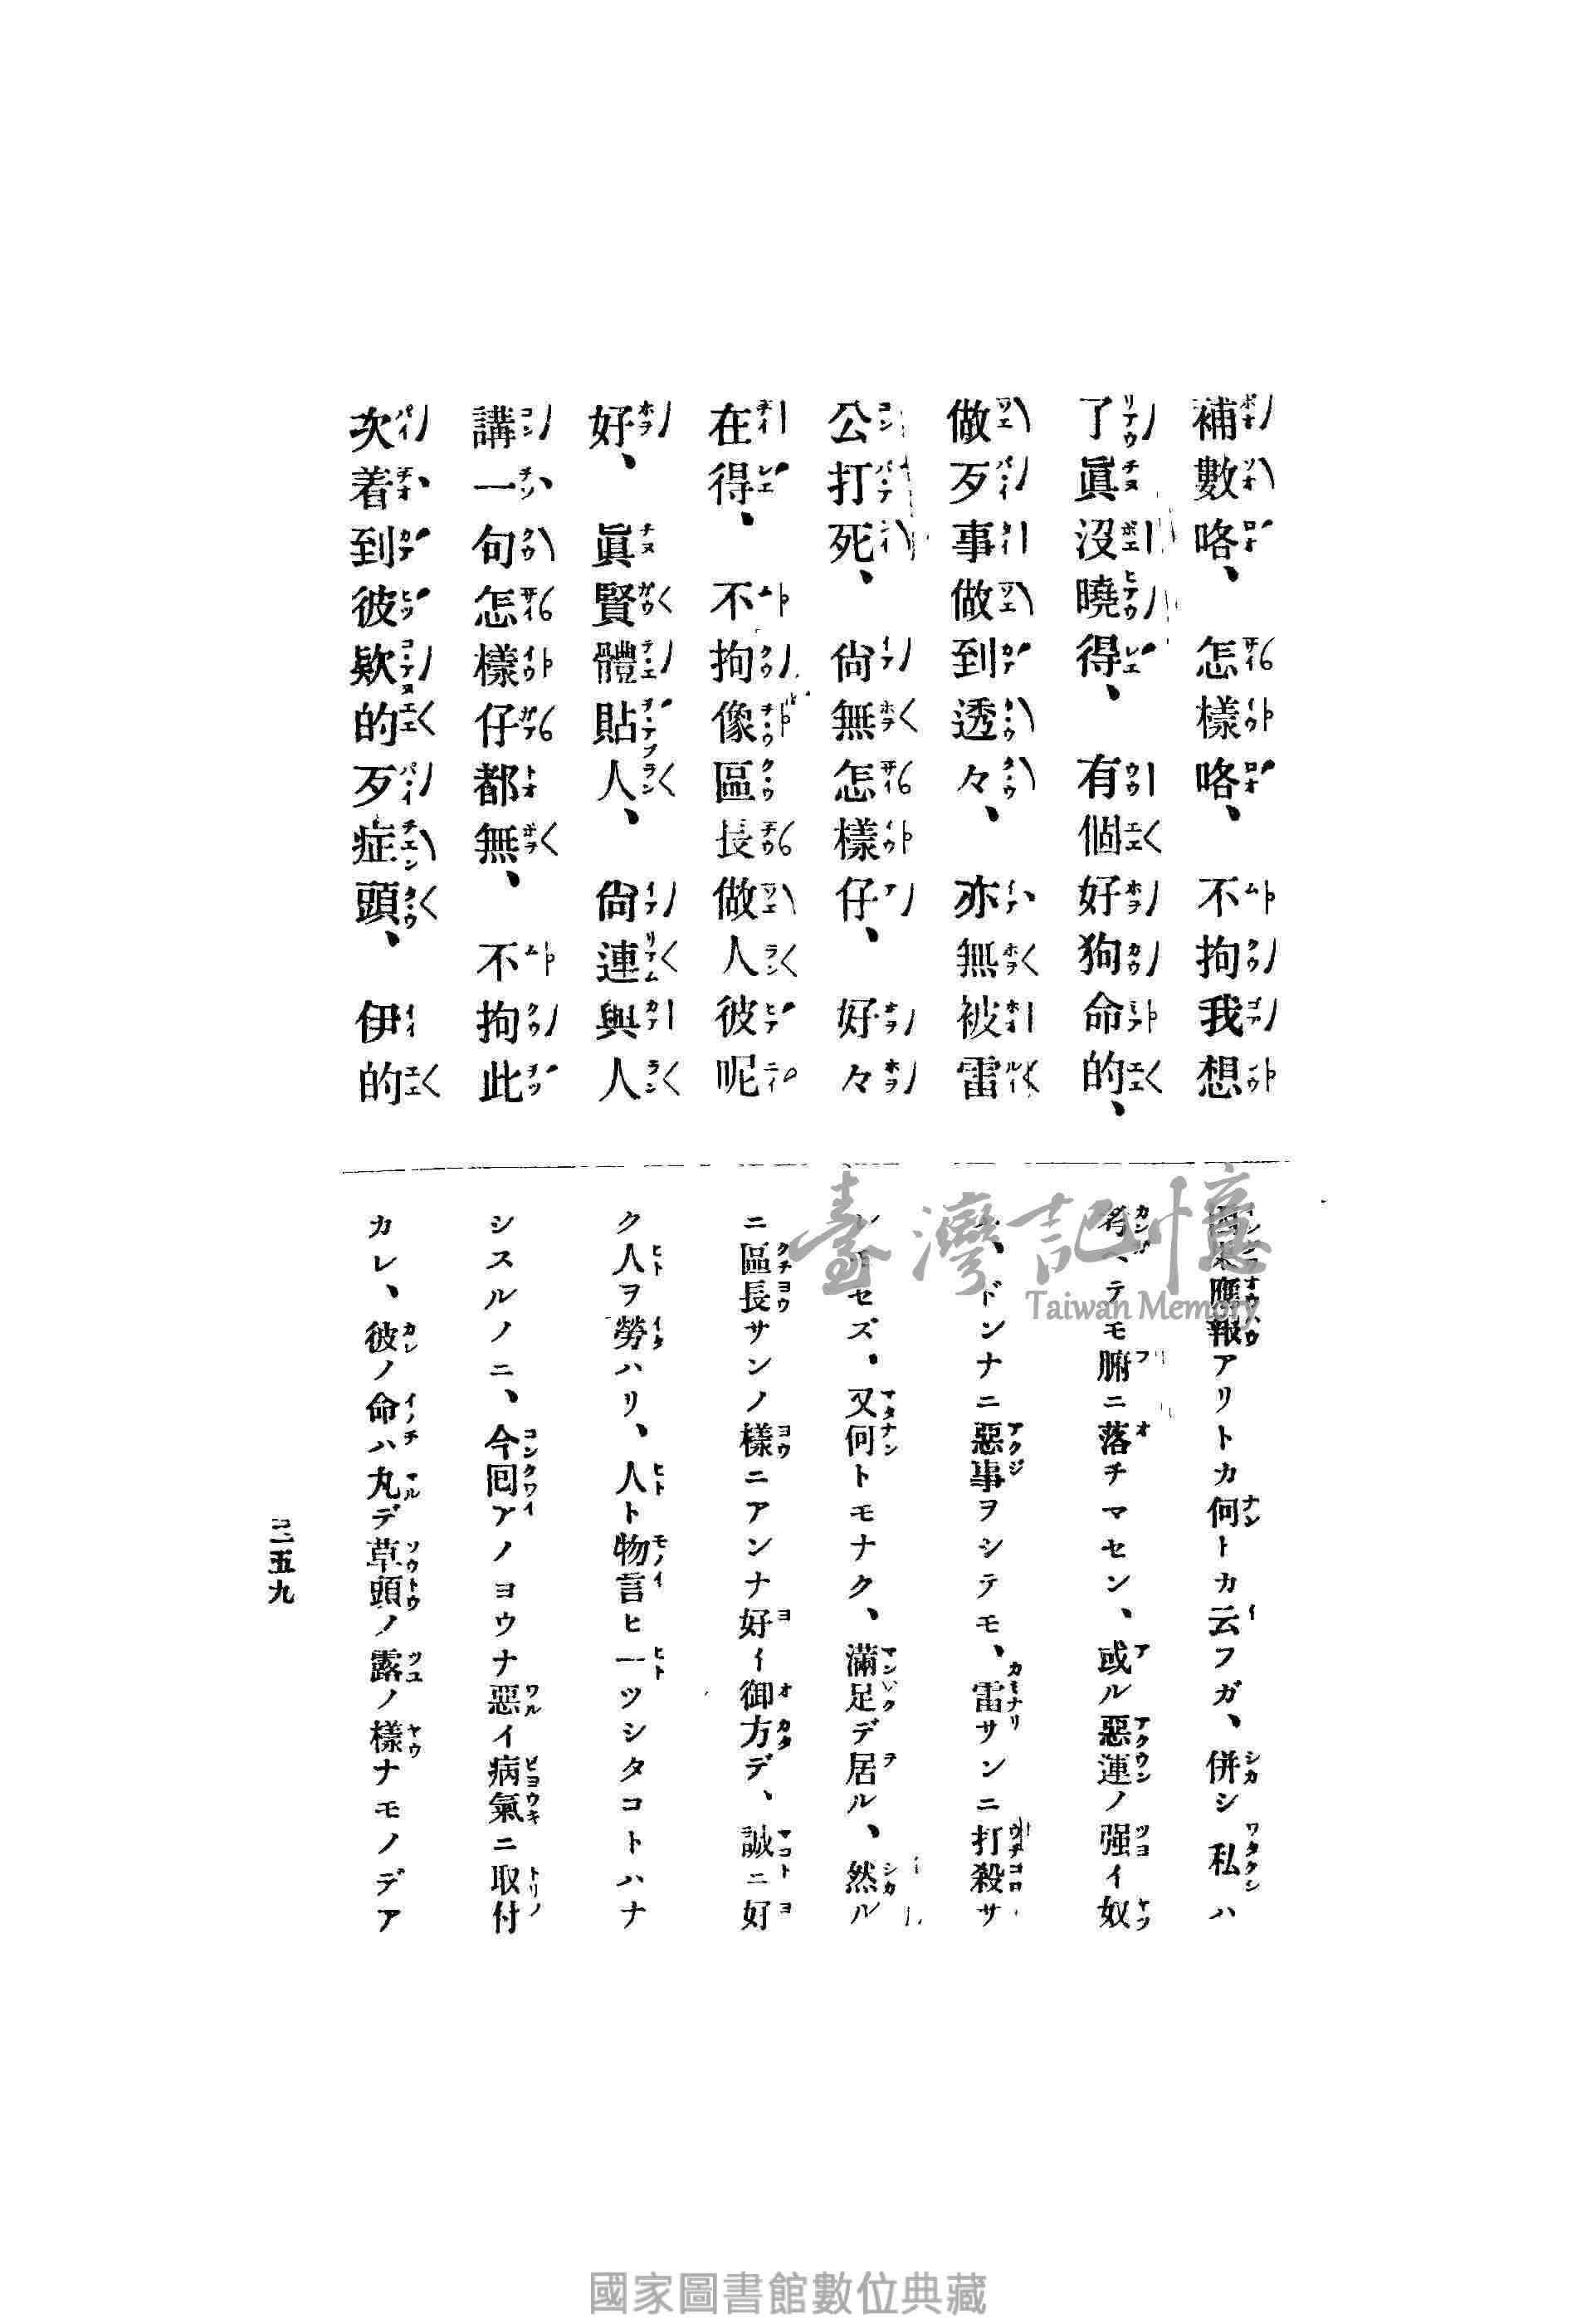 補數咯、怎樣咯、不拘我想
了眞沒曉得、有個好狗命的、
做歹事做到透々、亦無被雷
公打死、尙無怎樣仔、好々
在得、不拘像區長做人彼呢
好、眞賢體貼人、尙連與人
講一句怎樣仔都無、不拘此
次着到彼欵的歹症頭、伊的
應報アリトカ何トカ云フガ、併シ私ハ
テモ腑ニ落チマセン、或ル惡運ノ强イ奴
、ドンナニ惡事ヲシテモ、雷サンニ打殺サ
セズ、又何トモナク、滿足デ居ル、然ル
ニ區長サンノ樣ニアンナ好イ御方デ、誠ニ好
ク人ヲ勞ハリ、人ト物言ヒ一ツシタコトハナ
シスルノニ、今囘アノヨウナ惡イ病氣ニ取付
カレ、彼ノ命ハ丸デ草頭ノ露ノ樣ナモノデア
二五九
臺灣記憶
Taiwan Memory
國家圖書館數位典藏